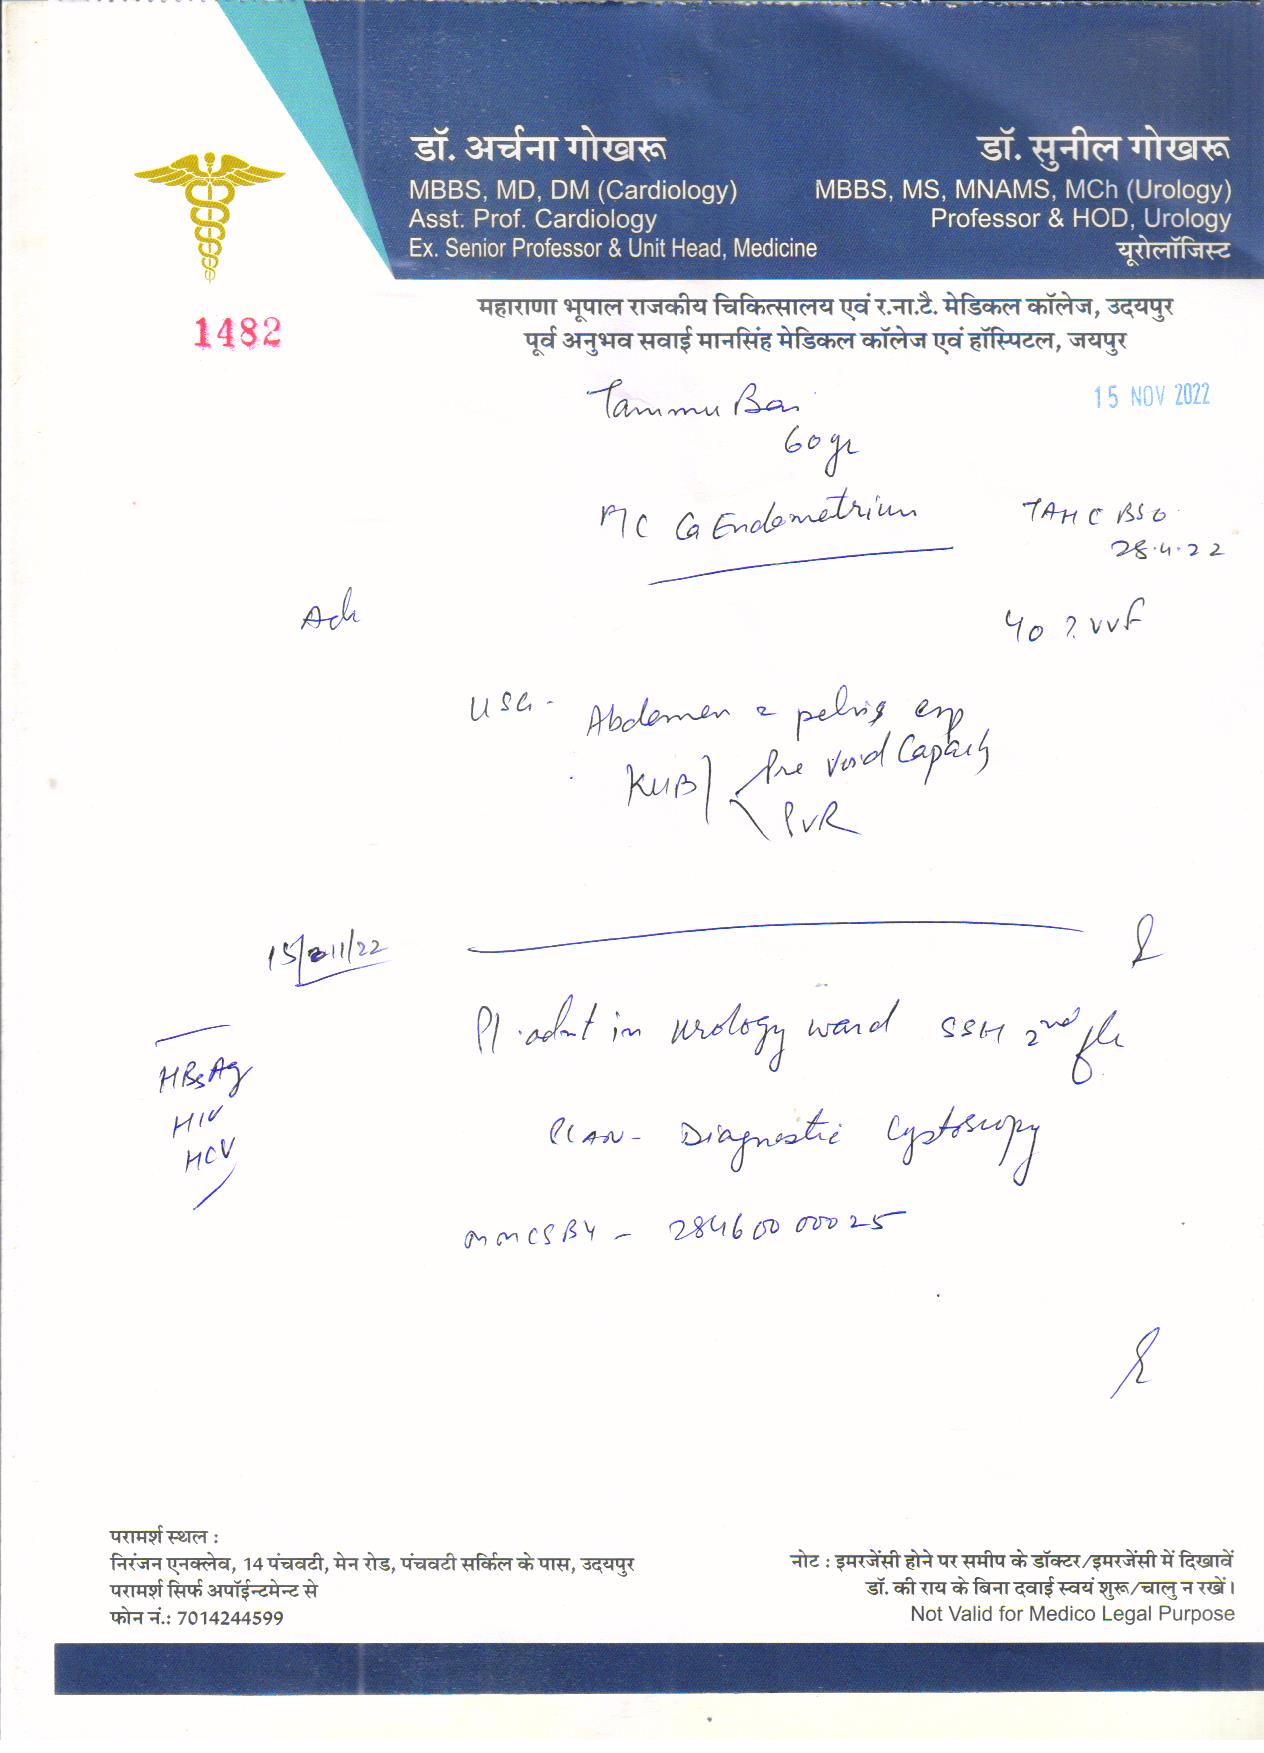 डॉ. अर्चना गोखरू
MBBS, MD, DM (Cardiology)
Asst. Prof. Cardiology
Ex. Senior Professor & Unit Head, Medicine
डॉ. सुनील गोखरू
MBBS, MS, MNAMS, MCh (Urology)
Professor & HOD, Urology
यूरोलॉजिस्ट
महाराणा भूपाल राजकीय चिकित्सालय एवं र.ना.टै. मेडिकल कॉलेज, उदयपुर
पूर्व अनुभव सवाई मानसिंह मेडिकल कॉलेज एवं हॉस्पिटल, जयपुर
1482
15 NOV 2022
Tammu Bai
60 yr
Ca Endometrium
TAH C BSO
28.4.22
? VVF
USG - Abdomen & pelvis
KUB
Pre Void Capacity
PVR
15/11/22
Pl. admit in Urology ward SSH 2nd
HBsAg
HIV
HCV
PLAN - Diagnostic Cystoscopy
MMCSBY - 28460000025
परामर्श स्थल :
निरंजन एनक्लेव, 14 पंचवटी, मेन रोड, पंचवटी सर्किल के पास, उदयपुर
परामर्श सिर्फ अपॉईन्टमेन्ट से
फोन नं.: 7014244599
नोट : इमरजेंसी होने पर समीप के डॉक्टर/इमरजेंसी में दिखावें
डॉ. की राय के बिना दवाई स्वयं शुरू/चालु न रखें।
Not Valid for Medico Legal Purpose